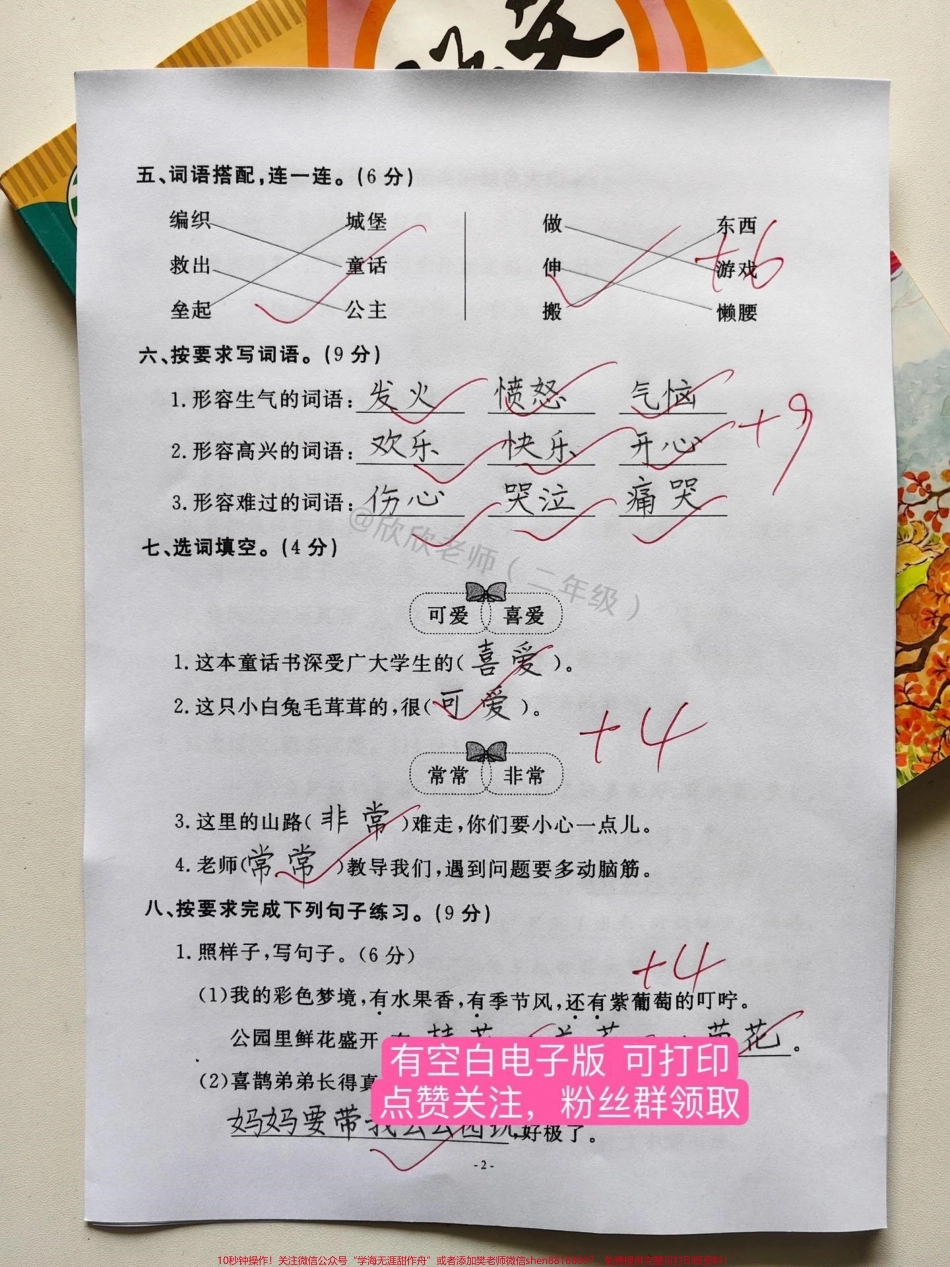 五、词语搭配,连一连。(6分)
编织 城堡 做 东西
救出 童话 伸 游戏
垒起 公主 搬 懒腰
+6
六、按要求写词语。(9分)
1.形容生气的词语: 发火 愤怒 气恼
2.形容高兴的词语: 欢乐 快乐 开心
+9
3.形容难过的词语: 伤心 哭泣 痛哭
@欣欣老师(二年级)
七、选词填空。(4分)
可爱 喜爱
1.这本童话书深受广大学生的(喜爱)。
2.这只小白兔毛茸茸的,很(可爱)。
+4
常常 非常
3.这里的山路(非常)难走,你们要小心一点儿。
4.老师(常常)教导我们,遇到问题要多动脑筋。
八、按要求完成下列句子练习。(9分)
1.照样子,写句子。(6分)
+4
(1)我的彩色梦境,有水果香,有季节风,还有紫葡萄的叮咛。
公园里鲜花盛开 花。
有空白电子版 可打印
(2)喜鹊弟弟长得真
点赞关注,粉丝群领取
妈妈要带我去公园玩,好极了。
-2-
10秒钟操作!关注微信公众号“学海无涯甜作舟”或者添加樊老师微信